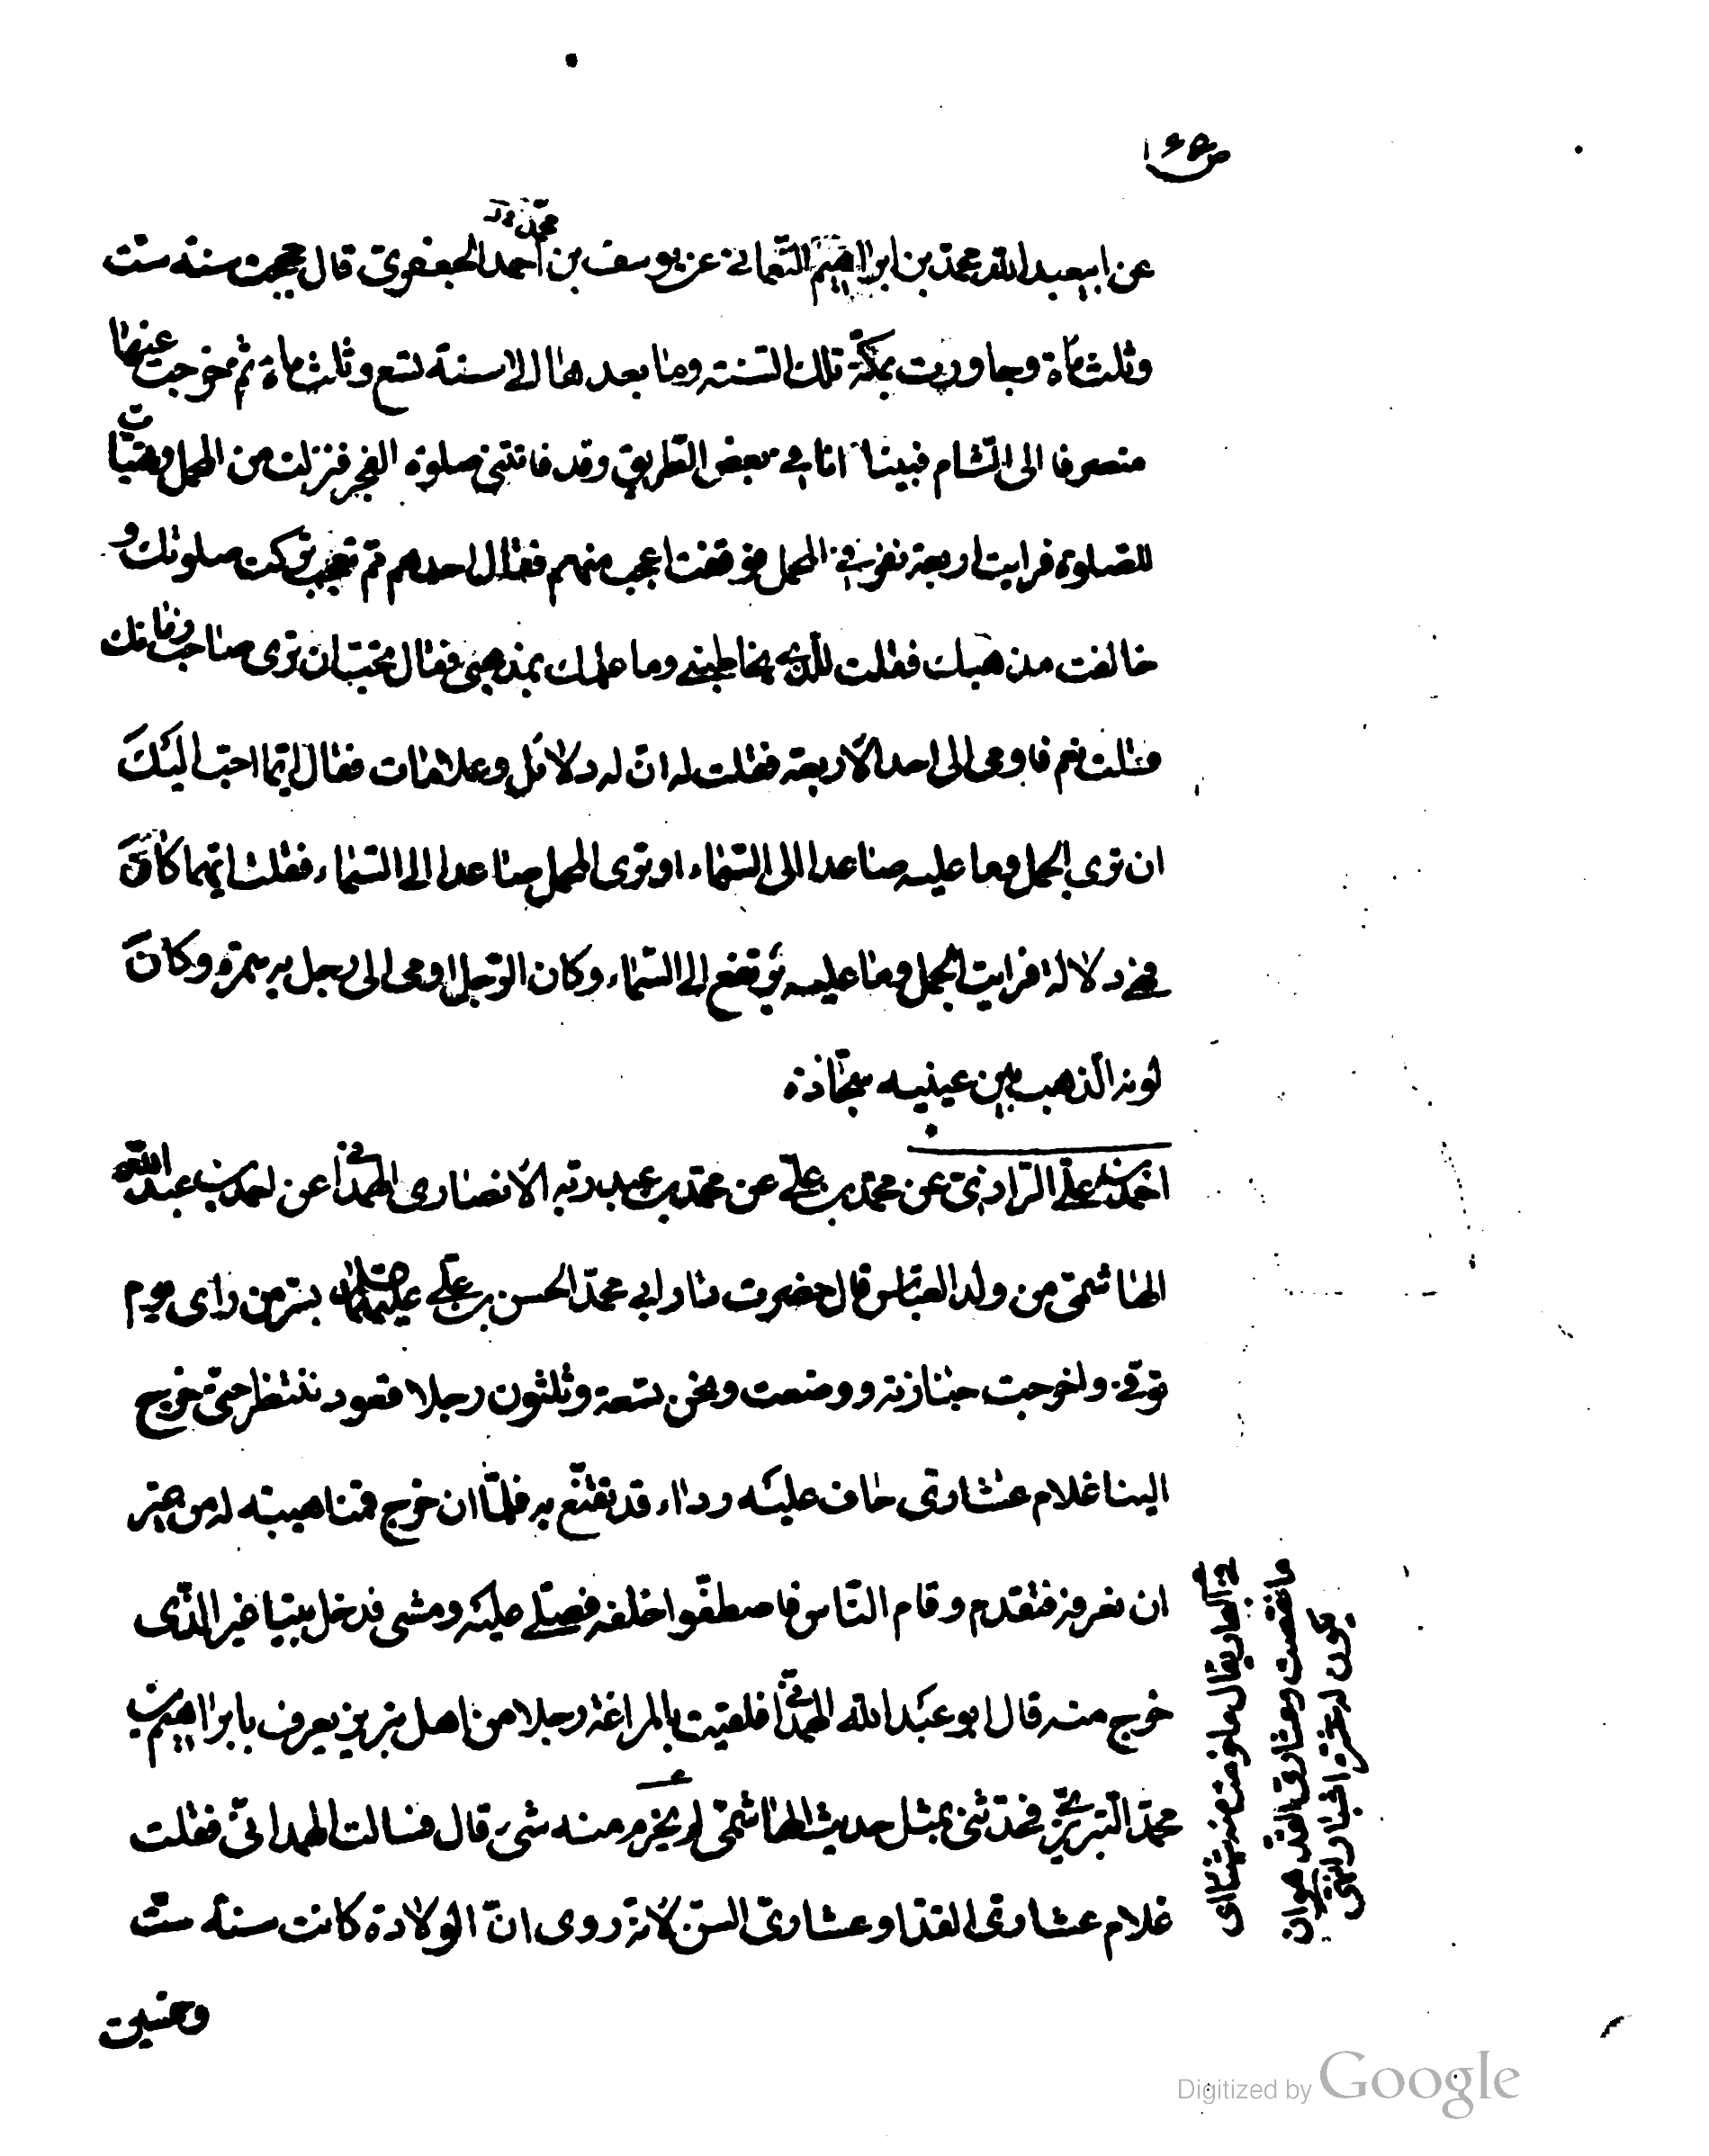 عن ابيعبد الله محمّد بن ابراهيم النّعمانى عن يوسف بن احمد الجعفرى قال حججت سنة ستّ
محمّد
وثلثماة وجاورت بمكّة تلك السّنة وما بعدها الى سنة تسع وثلثماة ثم خرجت عنها
منصرفا الى الشّام فبينا انا فى بعض الطّريق وقد فاتتنى صلوة الفجر فنزلت من المحمل وتهيّات
للصّلوة فرايت اربعة نفر فى المحمل فوقفت اعجب منهم فقال احدهم ممّ تعجب تركت صلوتك و
خالفت مذهبك فقلت للّذى يخاطبنى وما علمك بمذهبى فقال تحبّ ان ترى صاحب زمانك
فقلت نعم فاومى الى احد الاربعة فقلت له انّ له دلائل وعلامات فقال ايّما احبّ اليك
ان ترى الجمل وما عليه صاعدا الى السّماء او ترى المحمل صاعدا الى السّماء فقلت ايّهما كان
فهى دلالة فرايت الجمل وما عليه يرتفع الى السّماء وكان الرّجل اومى الى رجل به سمرة وكانّ
لونه الذّهب بين عينيه سجّادة
احمد بن علىّ الرّازىّ عن محمّد بن علىّ عن محمّد بن عبد ربّه الانصارى الهمدانى عن احمد بن عبد الله
الهاشمىّ من ولد العبّاس قال حضرت دار ابى محمّد الحسن بن علىّ عليهما بسرّ من راى يوم
توفّى واخرجت جنازته ووضعت ونحن تسعة وثلثون رجلا قعود ننتظر حتّى خرج
الينا غلام عشارى حاف عليه رداء قد تقنّع به فلمّا ان خرج قمنا هيبة له من غير
ان نعرفه فتقدم وقام النّاس فاصطفّوا خلفه فصلّى عليه ومشى فدخل بيتا غير الّذى
خرج منه قال ابو عبد الله الهمدانى فلقيت بالمراغة رجلا من اهل تبريز يعرف بابراهيم بن
محمّد التبريزىّ فحدّثنى بمثل حديث الهاشمىّ لم يخرم منه شىء قال فسالت الهمدانىّ فقلت
غلام عشارىّ القدّ او عشارىّ السّنّ لانّه روى انّ الولادة كانت سنة ستّ
وخمسين
يقال ما خرمت منه شيئا اى
ما نقصت وعشارى القدّ هو ان
يكون له عشرة اشبار